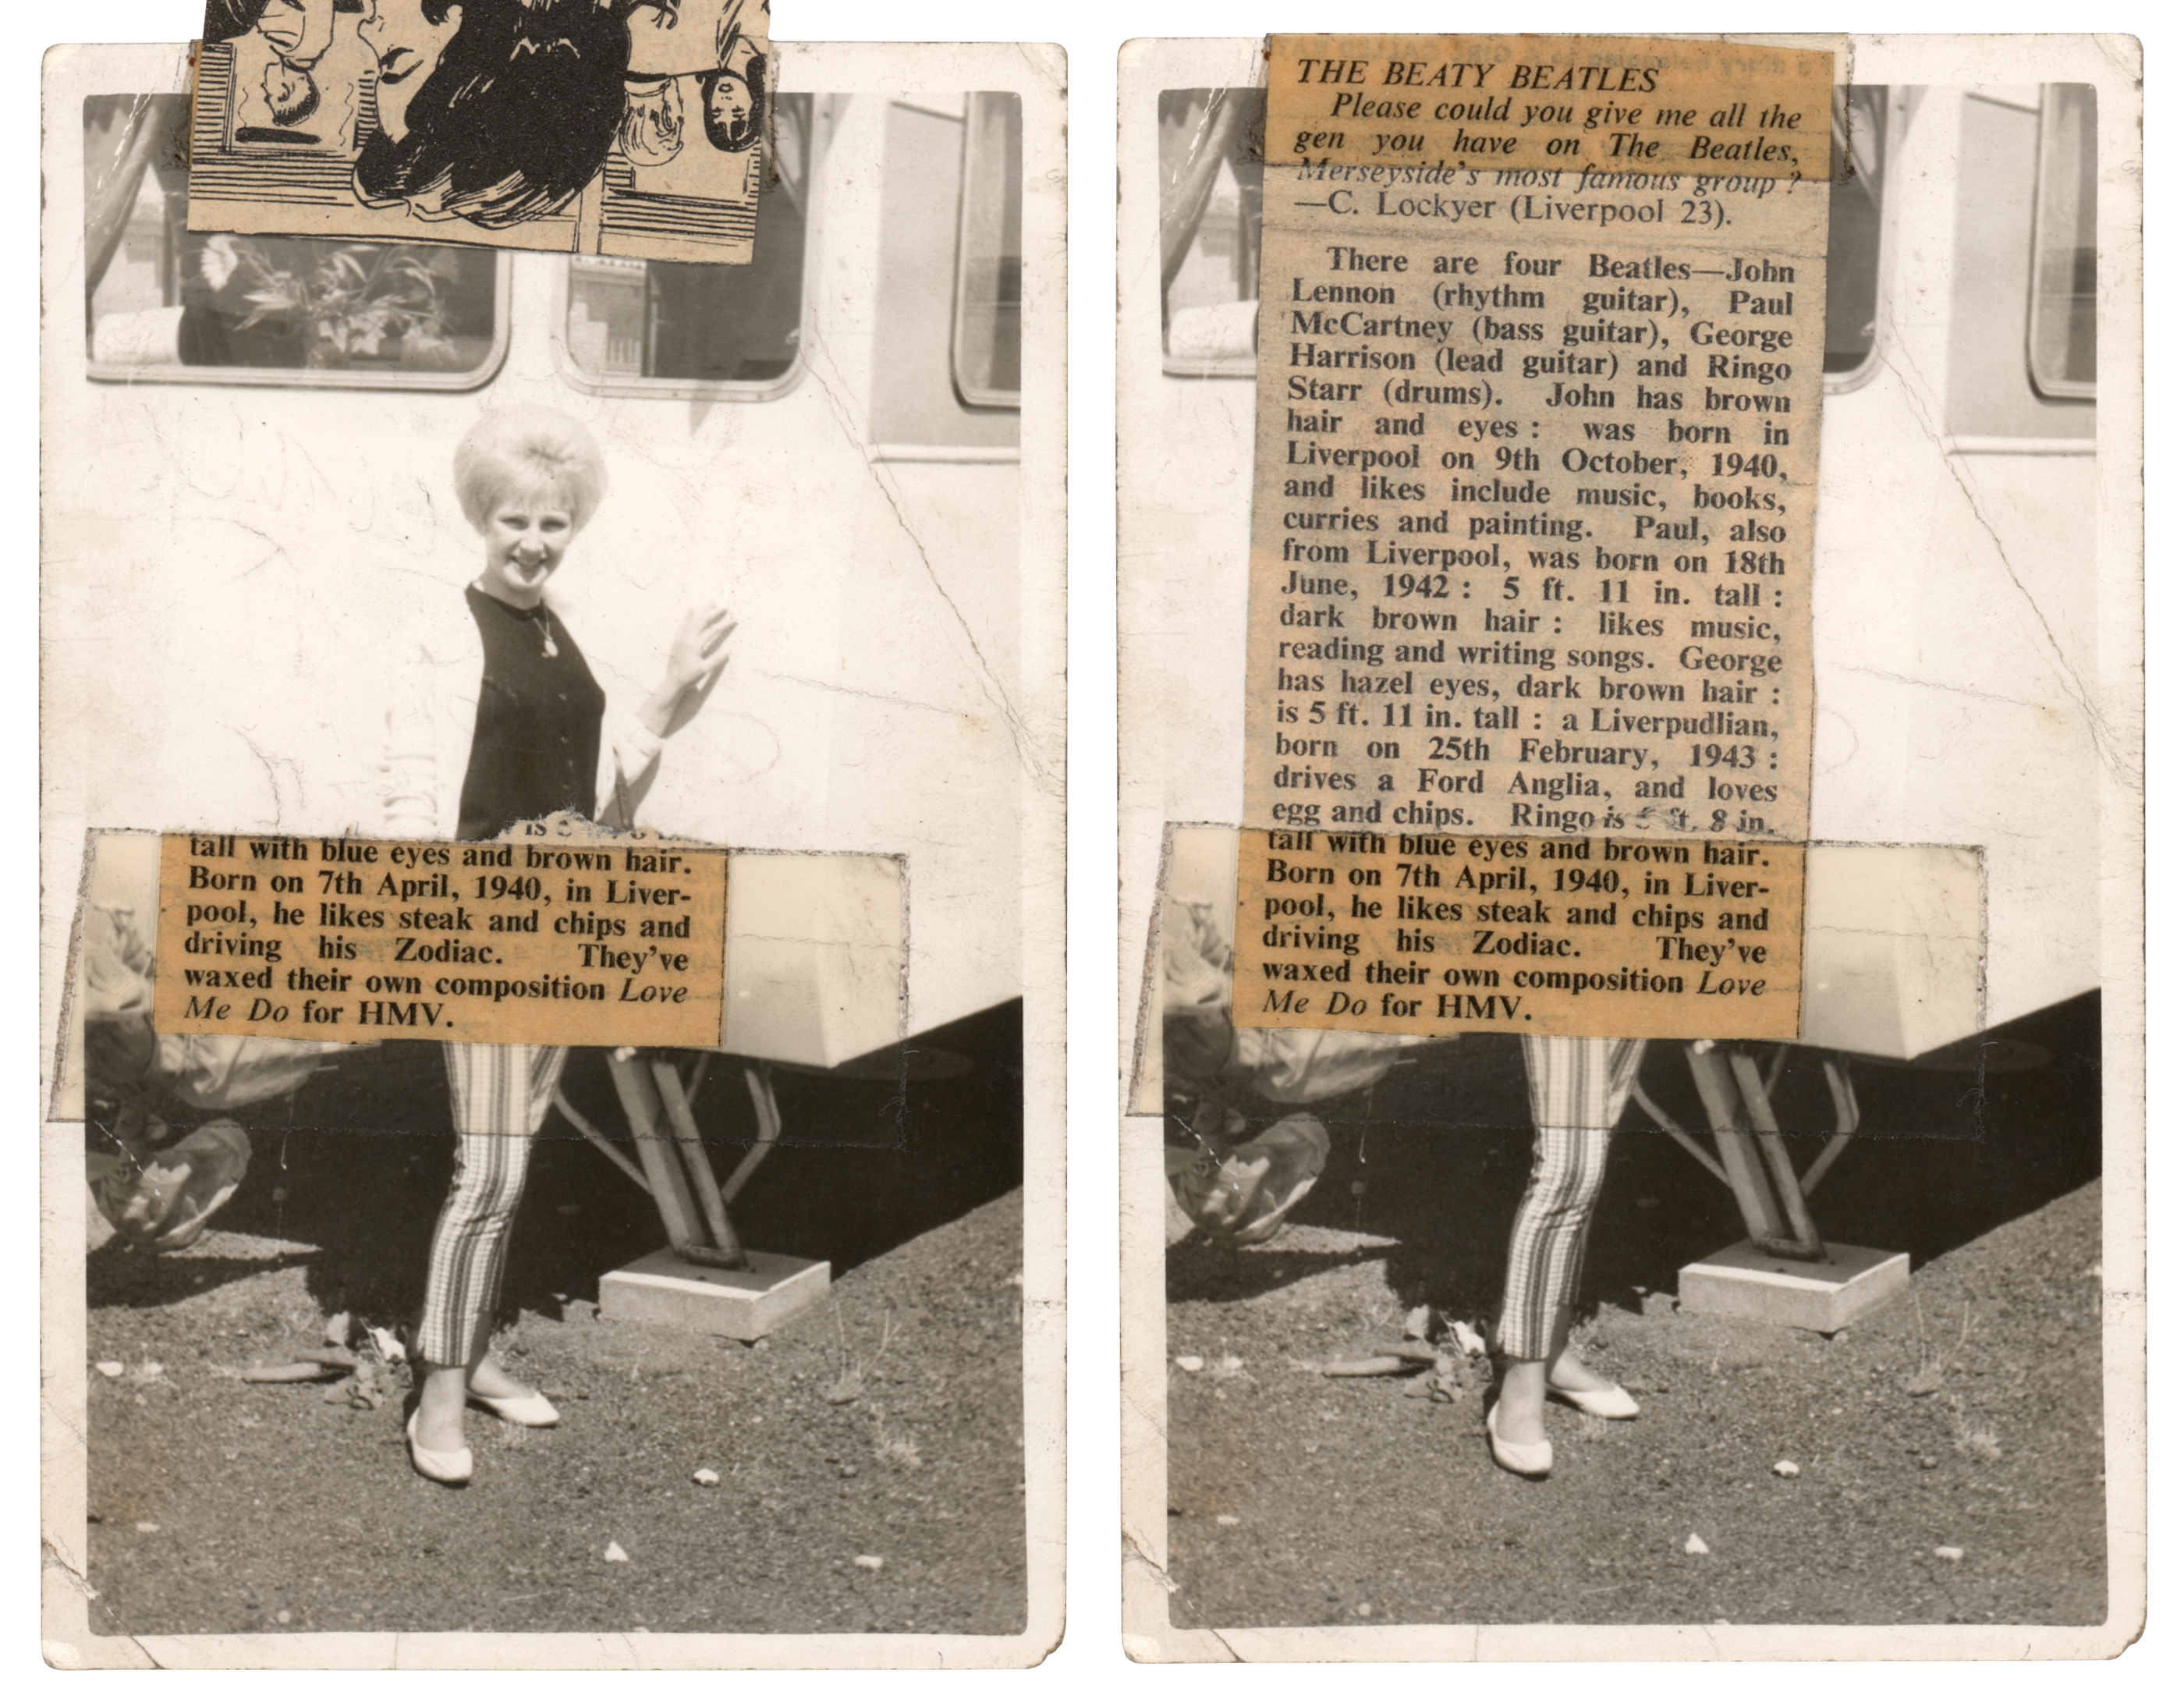 tall with blue eyes and brown hair.
Born on 7th April, 1940, in Liver-
pool, he likes steak and chips and
driving his Zodiac. They've
waxed their own composition Love
Me Do for HMV.
THE BEATY BEATLES
Please could you give me all the
gen you have on The Beatles,
Merseyside's most famous group ?
—C. Lockyer (Liverpool 23).
There are four Beatles—John
Lennon (rhythm guitar), Paul
McCartney (bass guitar), George
Harrison (lead guitar) and Ringo
Starr (drums). John has brown
hair and eyes : was born in
Liverpool on 9th October, 1940,
and likes include music, books,
curries and painting. Paul, also
from Liverpool, was born on 18th
June, 1942 : 5 ft. 11 in. tall :
dark brown hair : likes music,
reading and writing songs. George
has hazel eyes, dark brown hair :
is 5 ft. 11 in. tall : a Liverpudlian,
born on 25th February, 1943 :
drives a Ford Anglia, and loves
egg and chips. Ringo is 5 ft. 8 in.
tall with blue eyes and brown hair.
Born on 7th April, 1940, in Liver-
pool, he likes steak and chips and
driving his Zodiac. They've
waxed their own composition Love
Me Do for HMV.